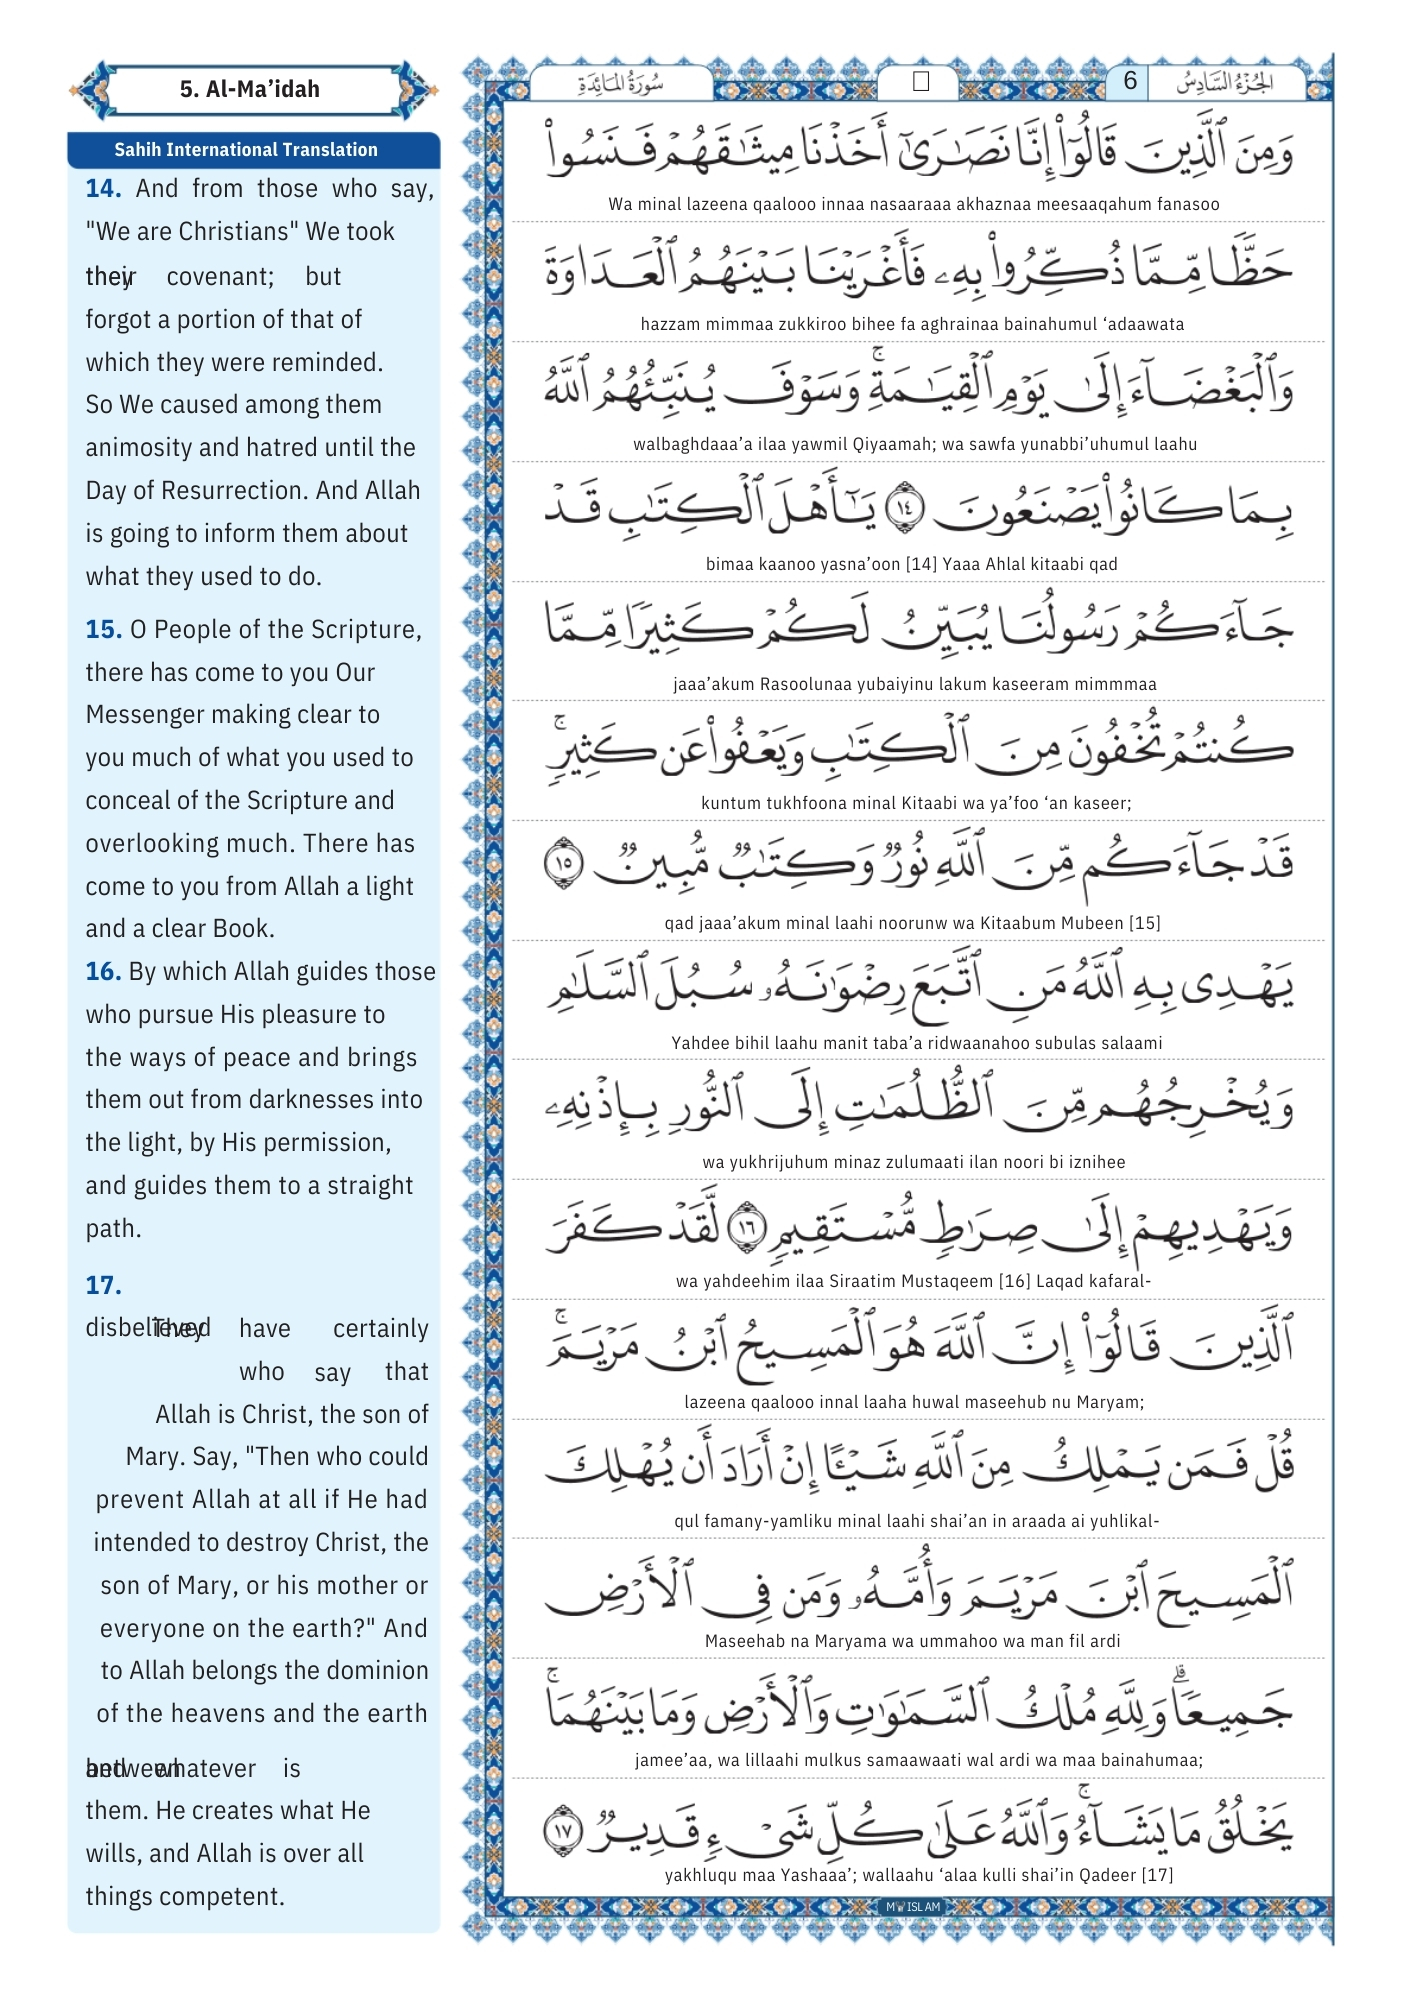 5. Al-Ma’idah
Sahih International Translation
14. And from those who say,
"We are Christians" We took
their they covenant; but
forgot a portion of that of
which they were reminded.
So We caused among them
animosity and hatred until the
Day of Resurrection. And Allah
is going to inform them about
what they used to do.
15. O People of the Scripture,
there has come to you Our
Messenger making clear to
you much of what you used to
conceal of the Scripture and
overlooking much. There has
come to you from Allah a light
and a clear Book.
16. By which Allah guides those
who pursue His pleasure to
the ways of peace and brings
them out from darknesses into
the light, by His permission,
and guides them to a straight
path.
17.
disbelieved They have certainly
who say that
Allah is Christ, the son of
Mary. Say, "Then who could
prevent Allah at all if He had
intended to destroy Christ, the
son of Mary, or his mother or
everyone on the earth?" And
to Allah belongs the dominion
of the heavens and the earth
and between whatever is
them. He creates what He
wills, and Allah is over all
things competent.
سُورَةُ المَائِدَةِ 6 الجُزْءُ السَّادِسُ
وَمِنَ ٱلَّذِينَ قَالُوٓا۟ إِنَّا نَصَـٰرَىٰٓ أَخَذْنَا مِيثَـٰقَهُمْ فَنَسُوا۟
Wa minal lazeena qaalooo innaa nasaaraaa akhaznaa meesaaqahum fanasoo
حَظًّا مِّمَّا ذُكِّرُوا۟ بِهِۦ فَأَغْرَيْنَا بَيْنَهُمُ ٱلْعَدَاوَةَ
hazzam mimmaa zukkiroo bihee fa aghrainaa bainahumul ‘adaawata
وَٱلْبَغْضَآءَ إِلَىٰ يَوْمِ ٱلْقِيَـٰمَةِ ۚ وَسَوْفَ يُنَبِّئُهُمُ ٱللَّهُ
walbaghdaaa’a ilaa yawmil Qiyaamah; wa sawfa yunabbi’uhumul laahu
بِمَا كَانُوا۟ يَصْنَعُونَ ١٤ يَـٰٓأَهْلَ ٱلْكِتَـٰبِ قَدْ
bimaa kaanoo yasna’oon [14] Yaaa Ahlal kitaabi qad
جَآءَكُمْ رَسُولُنَا يُبَيِّنُ لَكُمْ كَثِيرًا مِّمَّا
jaaa’akum Rasoolunaa yubaiyinu lakum kaseeram mimmmaa
كُنتُمْ تُخْفُونَ مِنَ ٱلْكِتَـٰبِ وَيَعْفُوا۟ عَن كَثِيرٍ ۚ
kuntum tukhfoona minal Kitaabi wa ya’foo ‘an kaseer;
قَدْ جَآءَكُم مِّنَ ٱللَّهِ نُورٌ وَكِتَـٰبٌ مُّبِينٌ ١٥
qad jaaa’akum minal laahi noorunw wa Kitaabum Mubeen [15]
يَهْدِى بِهِ ٱللَّهُ مَنِ ٱتَّبَعَ رِضْوَٰنَهُۥ سُبُلَ ٱلسَّلَـٰمِ
Yahdee bihil laahu manit taba’a ridwaanahoo subulas salaami
وَيُخْرِجُهُم مِّنَ ٱلظُّلُمَـٰتِ إِلَى ٱلنُّورِ بِإِذْنِهِۦ
wa yukhrijuhum minaz zulumaati ilan noori bi iznihee
وَيَهْدِيهِمْ إِلَىٰ صِرَٰطٍ مُّسْتَقِيمٍ ١٦ لَّقَدْ كَفَرَ
wa yahdeehim ilaa Siraatim Mustaqeem [16] Laqad kafaral-
ٱلَّذِينَ قَالُوٓا۟ إِنَّ ٱللَّهَ هُوَ ٱلْمَسِيحُ ٱبْنُ مَرْيَمَ ۚ
lazeena qaalooo innal laaha huwal maseehub nu Maryam;
قُلْ فَمَن يَمْلِكُ مِنَ ٱللَّهِ شَيْـًٔا إِنْ أَرَادَ أَن يُهْلِكَ
qul famany-yamliku minal laahi shai’an in araada ai yuhlikal-
ٱلْمَسِيحَ ٱبْنَ مَرْيَمَ وَأُمَّهُۥ وَمَن فِى ٱلْأَرْضِ
Maseehab na Maryama wa ummahoo wa man fil ardi
جَمِيعًا ۗ وَلِلَّهِ مُلْكُ ٱلسَّمَـٰوَٰتِ وَٱلْأَرْضِ وَمَا بَيْنَهُمَا ۚ
jamee’aa, wa lillaahi mulkus samaawaati wal ardi wa maa bainahumaa;
يَخْلُقُ مَا يَشَآءُ ۚ وَٱللَّهُ عَلَىٰ كُلِّ شَىْءٍ قَدِيرٌ ١٧
yakhluqu maa Yashaaa’; wallaahu ‘alaa kulli shai’in Qadeer [17]
MY ISLAM